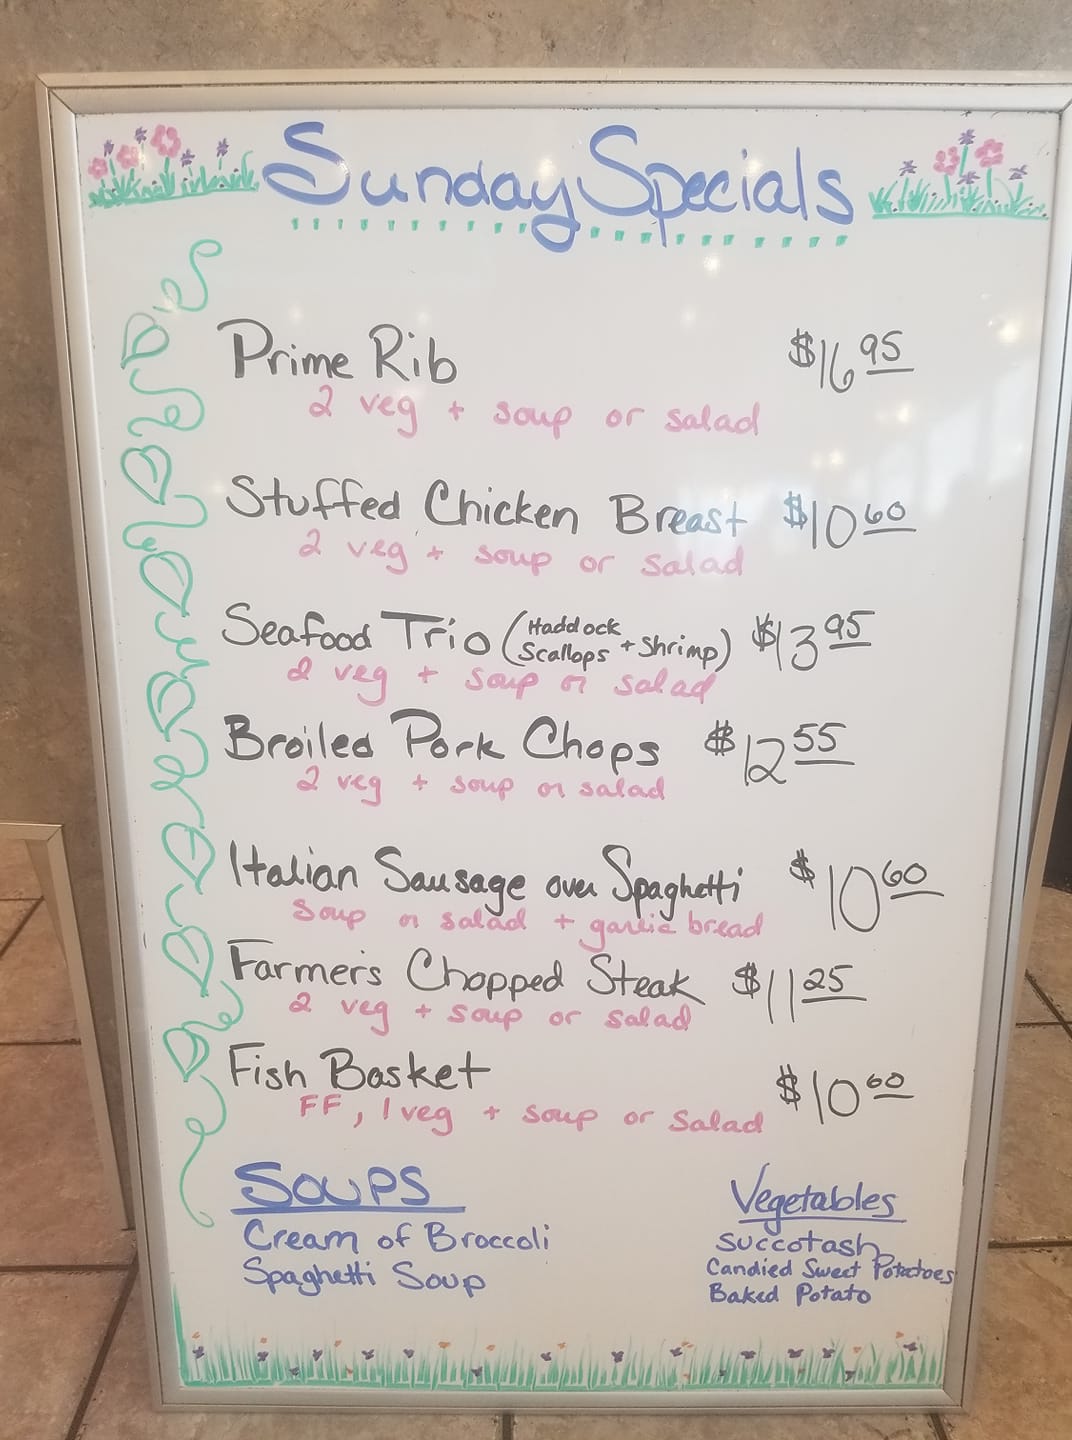 Sunday Specials
Prime Rib $16 95
2 veg + soup or salad
Stuffed Chicken Breast $10 60
2 veg + soup or salad
Seafood Trio (Haddock Scallops + Shrimp) $13 95
2 veg + soup or salad
Broiled Pork Chops $12 55
2 veg + soup or salad
Italian Sausage over Spaghetti $10 60
soup or salad + garlic bread
Farmer's Chopped Steak $11 25
2 veg + soup or salad
Fish Basket $10 60
FF, 1 veg + soup or salad
Soups
Cream of Broccoli
Spaghetti Soup
Vegetables
Succotash
Candied Sweet Potatoes
Baked Potato